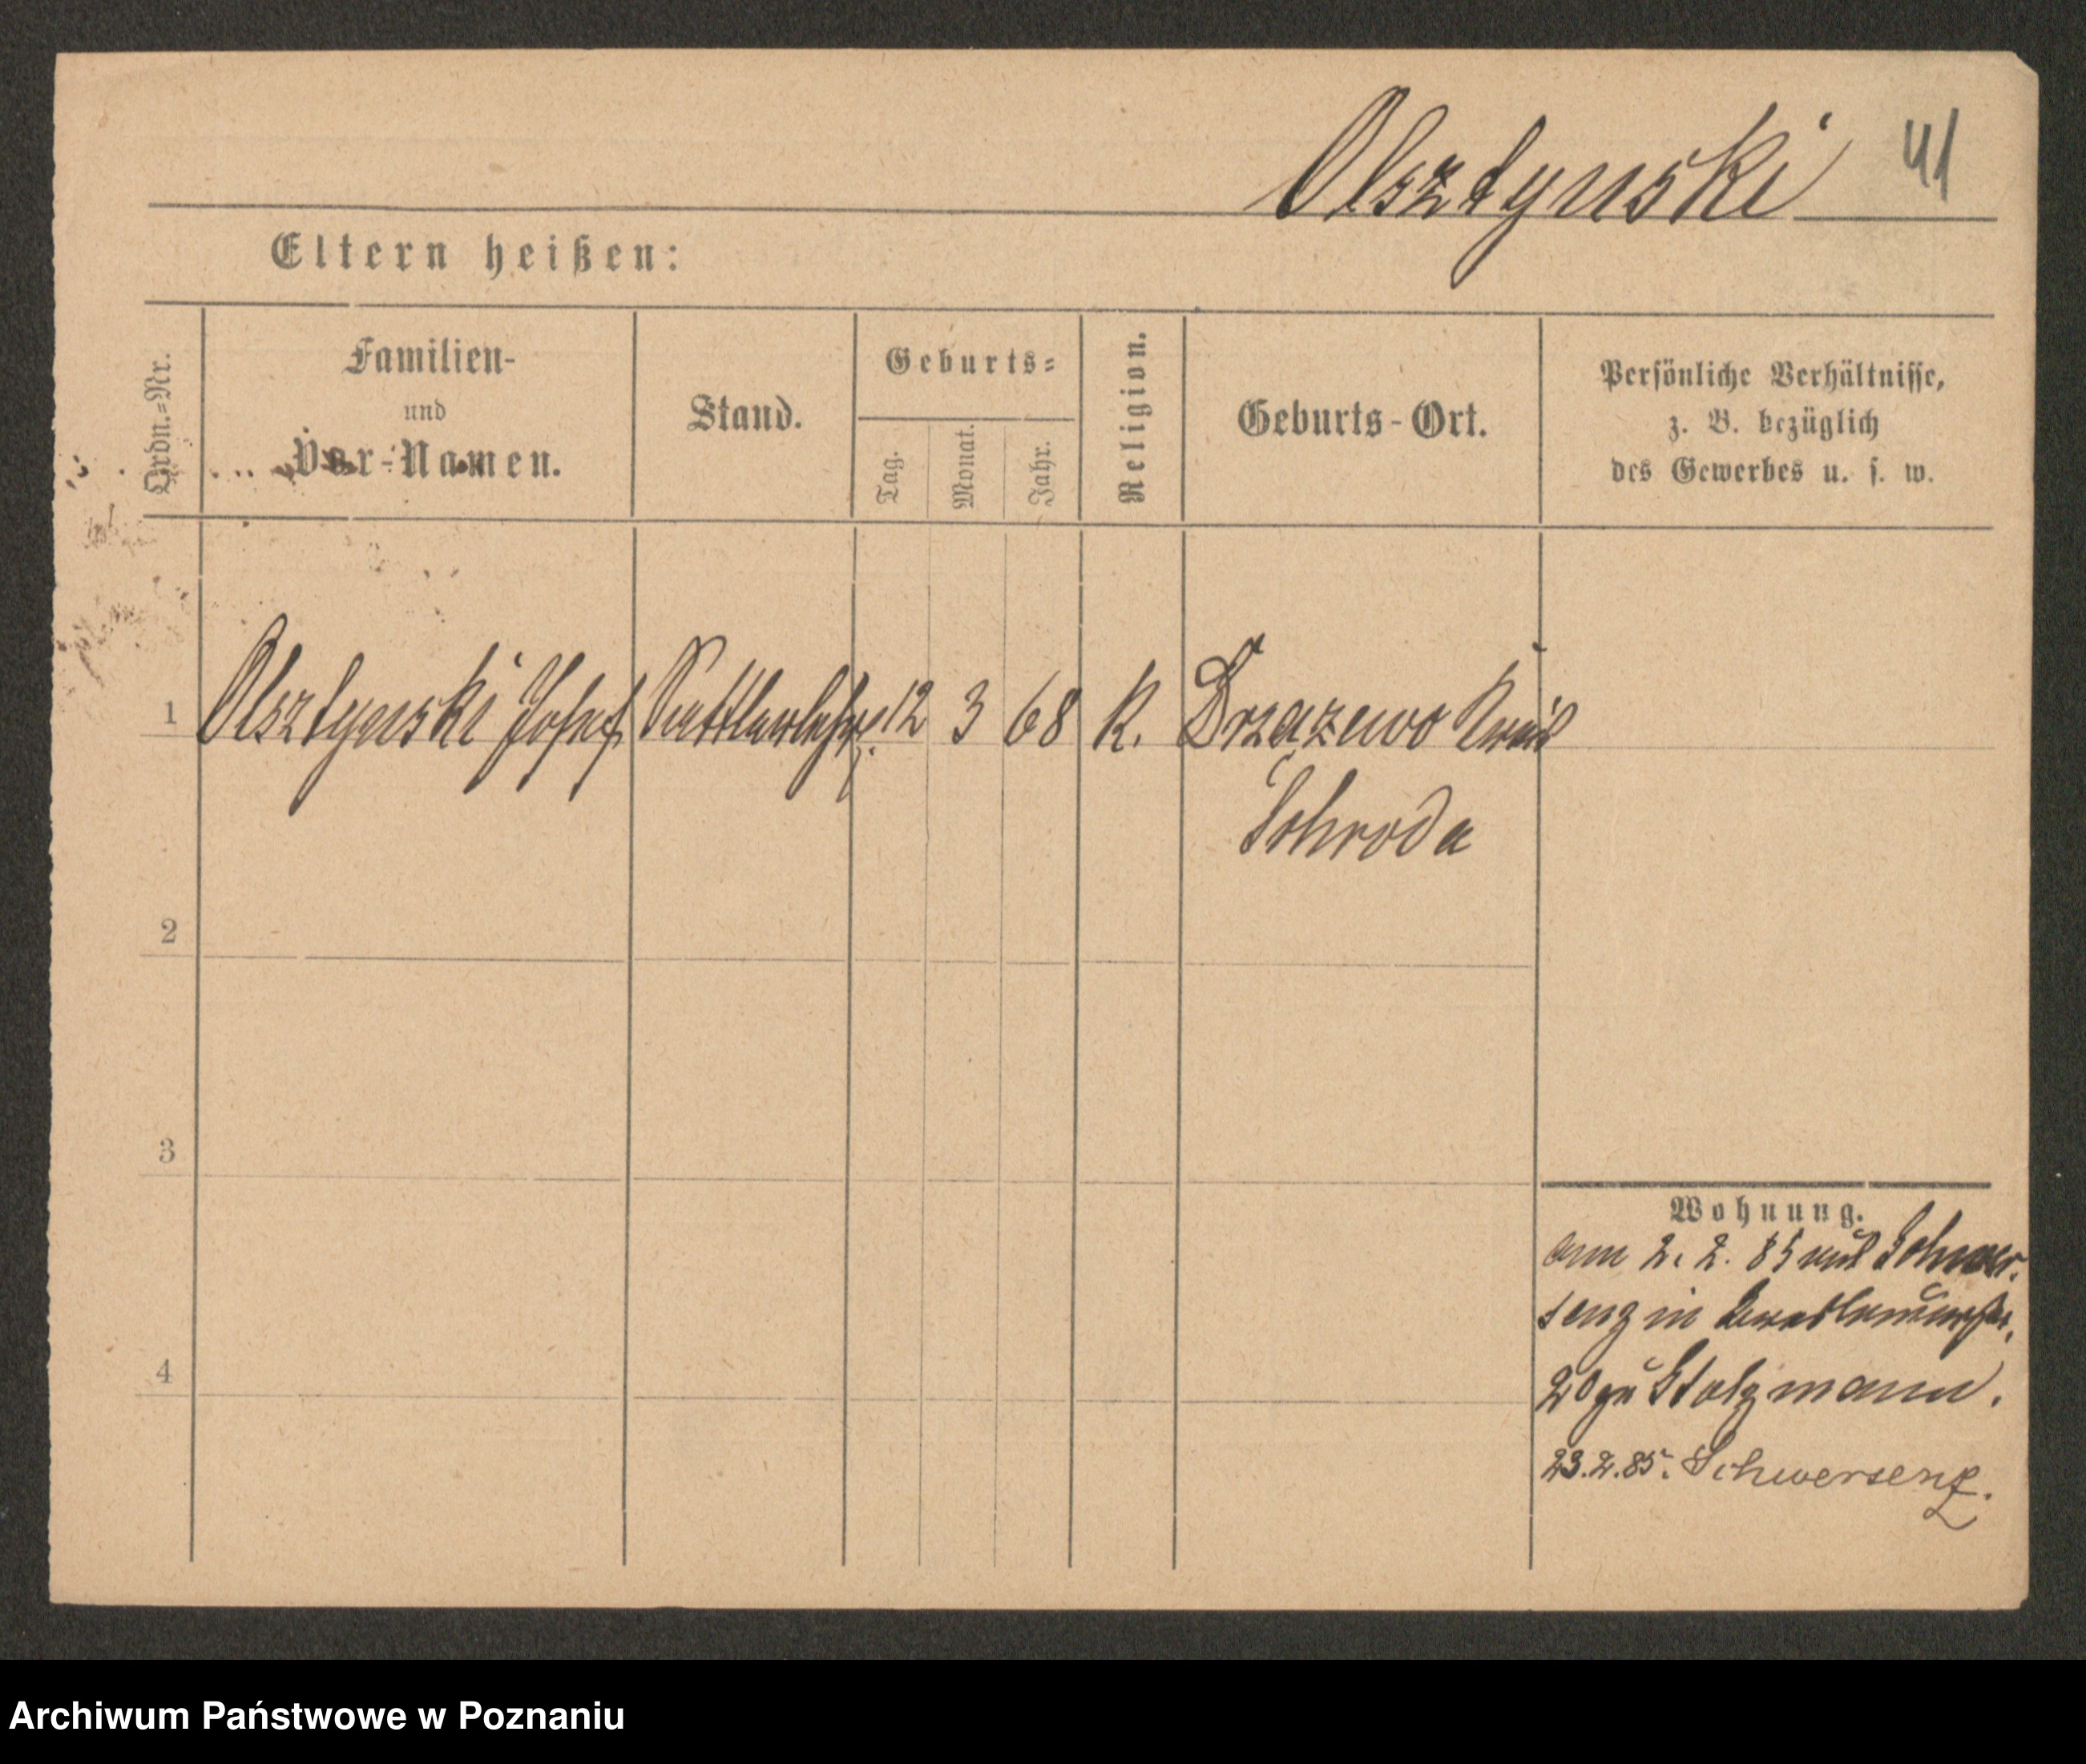 Olsztynski 41
Eltern heißen:
Ordn.=Nr.
Familien-
und
Vor-Namen.
Stand.
Geburts=
Tag.
Monat.
Jahr.
Religion.
Geburts-Ort.
Persönliche Verhältnisse,
z. B. bezüglich
des Gewerbes u. s. w.
1 Olsztynski Josef Sattlerlehrl. 12 3 68 K. Drzazewo Kreis
Schroda
2
3
4
Wohnung.
am 2. 2. 85 aus Schwer-
senz in
20 zu Stolzmann.
23.2.85. Schwersenz.
Archiwum Państwowe w Poznaniu